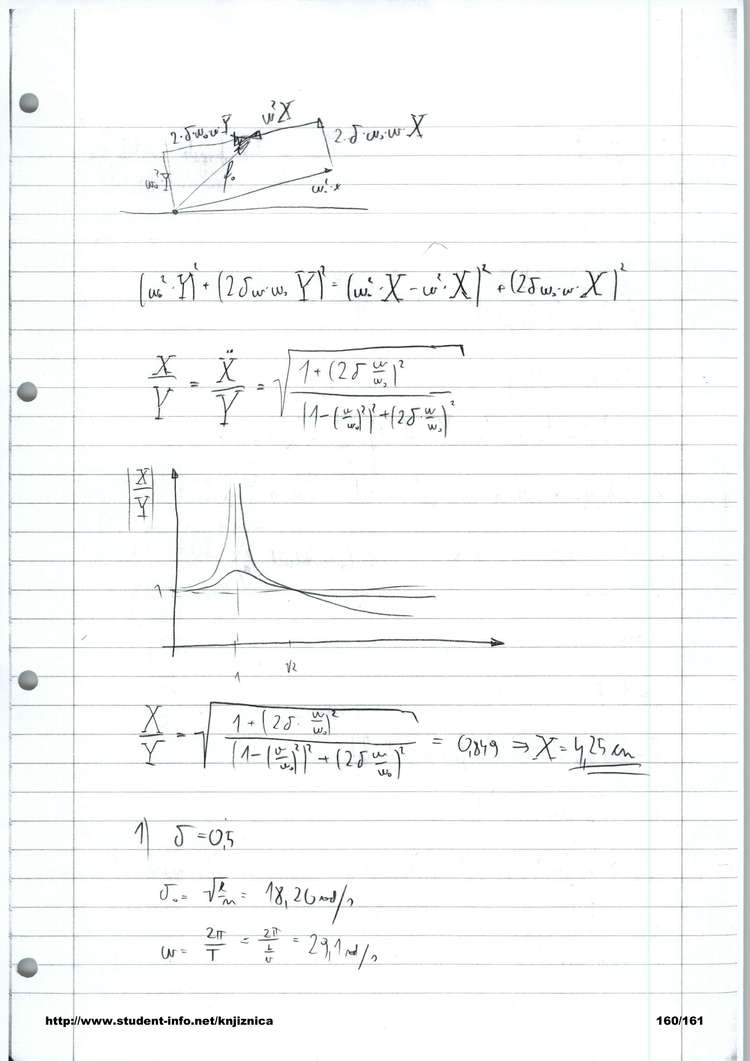 2·δω₀ω Y ω²X 2·δ·ω₀·ω X
ω₀²Y f₀ ω₀²·x
(ω₀²·Y)² + (2δω·ω₀ Y)² = (ω₀²·X − ω²·X)² + (2δω₀·ω·X)²
X/Y = Ẍ/Y = √((1+(2δ ω/ω₀)²)/((1−(ω/ω₀)²)²+(2δ·ω/ω₀)²))
|X/Y|
1
1 √2
X/Y = √((1+(2δ·ω/ω₀)²)/((1−(ω/ω₀)²)²+(2δ ω/ω₀)²)) = 0,849 ⇒ X = 4,25 cm
1) δ = 0,5
ω₀ = √(k/m) = 18,26 rad/s
ω = 2π/T = 2π/(L/v) = 29,1 rad/s
http://www.student-info.net/knjiznica 160/161